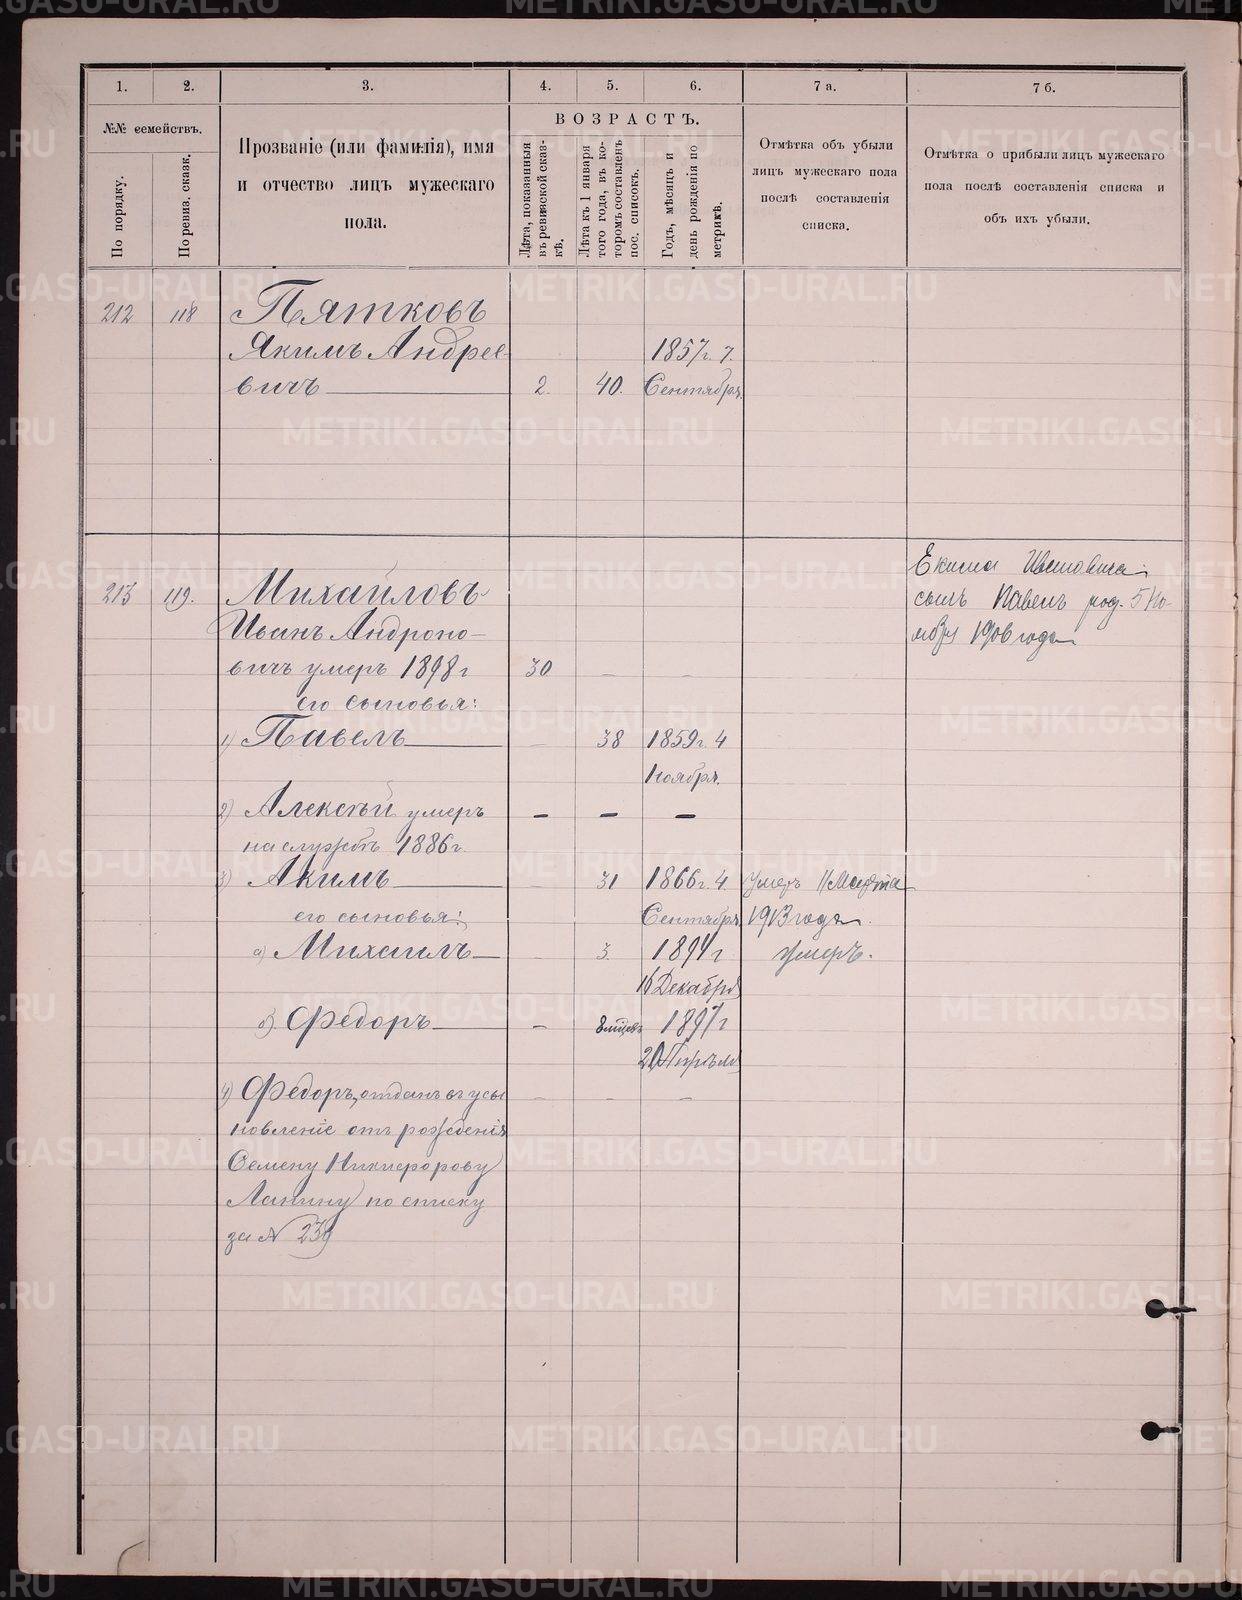 1.
2.
3.
4.
5.
6.
7 а.
7 б.
№№ семействъ.
По порядку.
По ревиз. сказк.
Прозваніе (или фамилія), имя
и отчество лицъ мужескаго
пола.
ВОЗРАСТЪ.
Лѣта, показанныя
въ ревизской сказ-
кѣ.
Лѣта къ 1 января
того года, въ ко-
торомъ составленъ
пос. списокъ.
Годъ, мѣсяцъ и
день рожденія по
метрикѣ.
Отмѣтка объ убыли
лицъ мужескаго пола
послѣ составленія
списка.
Отмѣтка о прибыли лицъ мужескаго
пола послѣ составленія списка и
объ ихъ убыли.
212 118 Пятковъ
Якимъ Андрее- 1857г. 7.
вичъ 2. 40. Сентября.
213 119. Михайловъ
Иванъ Андроно-
вичъ умеръ 1898г 30 – –
его сыновья:
1) Павелъ – 38 1859г. 4
Ноября.
2) Алексѣй умеръ – – –
на службѣ 1886г.
3) Акимъ – 31 1866г. 4. Умеръ 11 Марта
его сыновья: Сентября 1913 года.
а) Михаилъ – 3. 1894г умеръ.
16 Декабря
б) Федоръ – 8 мѣсяц. 1897г
20 Апрѣля
4) Федоръ, отданъ въ усы – – –
новленіе отъ рожденія
Семену Никифорову
Лапину по списку
за № 239
Екима Ивановича
сынъ Павелъ род. 5 Но-
ября 1906 года
METRIKI.GASO-URAL.RU